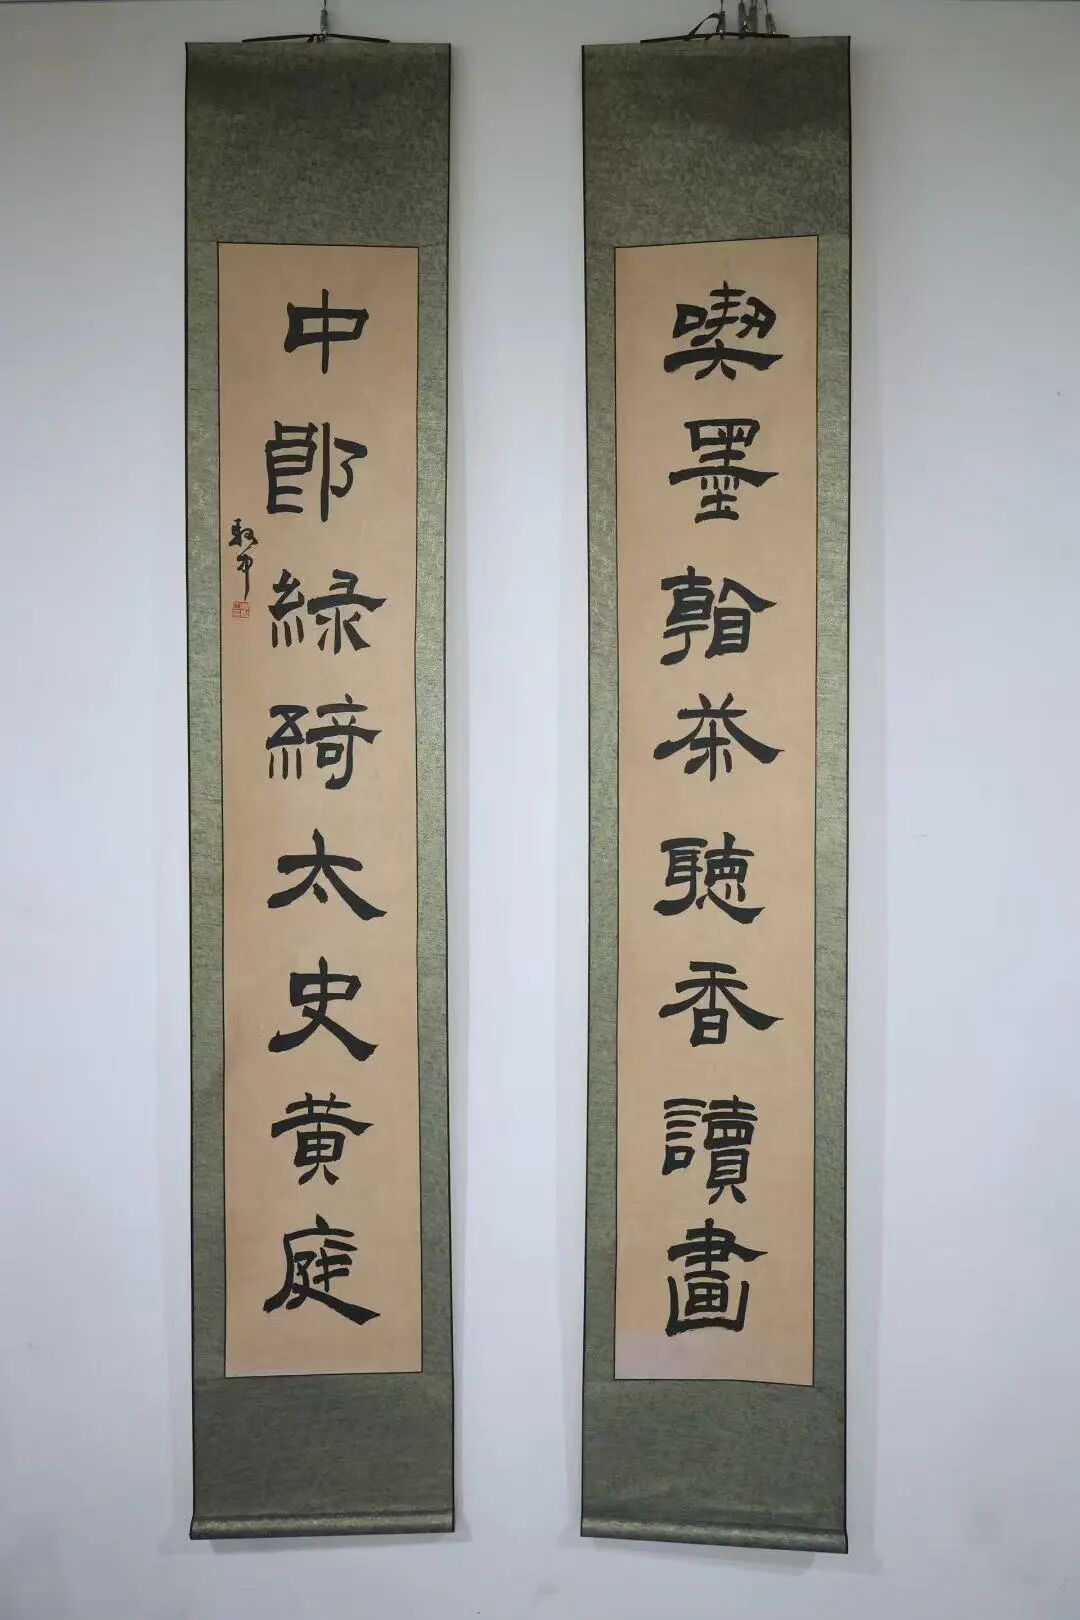 喫墨看茶聽香讀畫
中郎緑綺太史黄庭